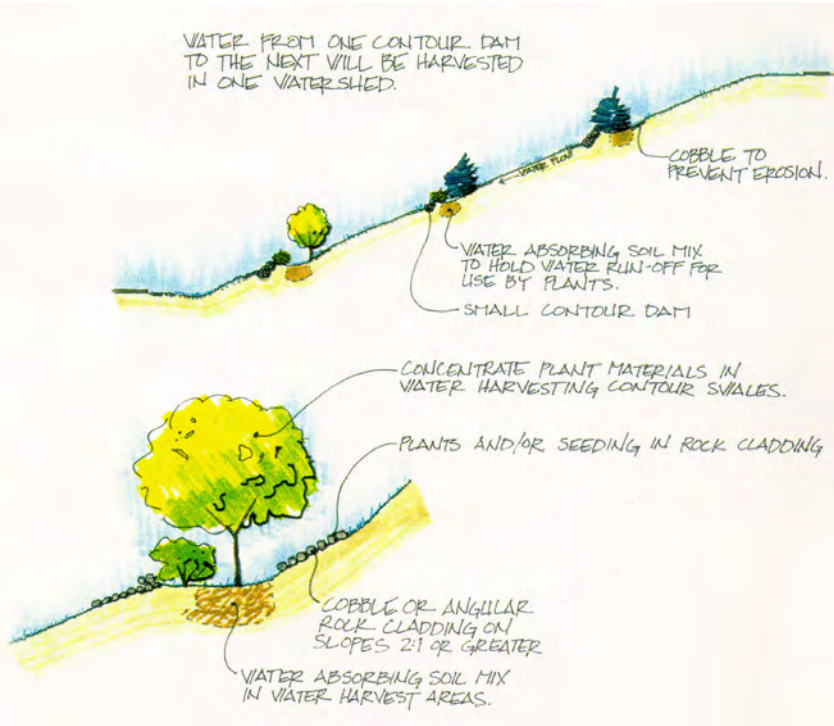 WATER FROM ONE CONTOUR DAM
TO THE NEXT WILL BE HARVESTED
IN ONE WATERSHED.
WATER FLOW
COBBLE TO
PREVENT EROSION.
WATER ABSORBING SOIL MIX
TO HOLD WATER RUN-OFF FOR
USE BY PLANTS.
SMALL CONTOUR DAM
CONCENTRATE PLANT MATERIALS IN
WATER HARVESTING CONTOUR SWALES.
PLANTS AND/OR SEEDING IN ROCK CLADDING
COBBLE OR ANGULAR
ROCK CLADDING ON
SLOPES 2:1 OR GREATER
WATER ABSORBING SOIL MIX
IN WATER HARVEST AREAS.